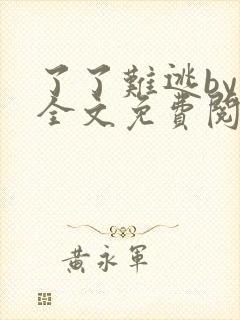 了了難逃by
全文免費閱
黃永軍